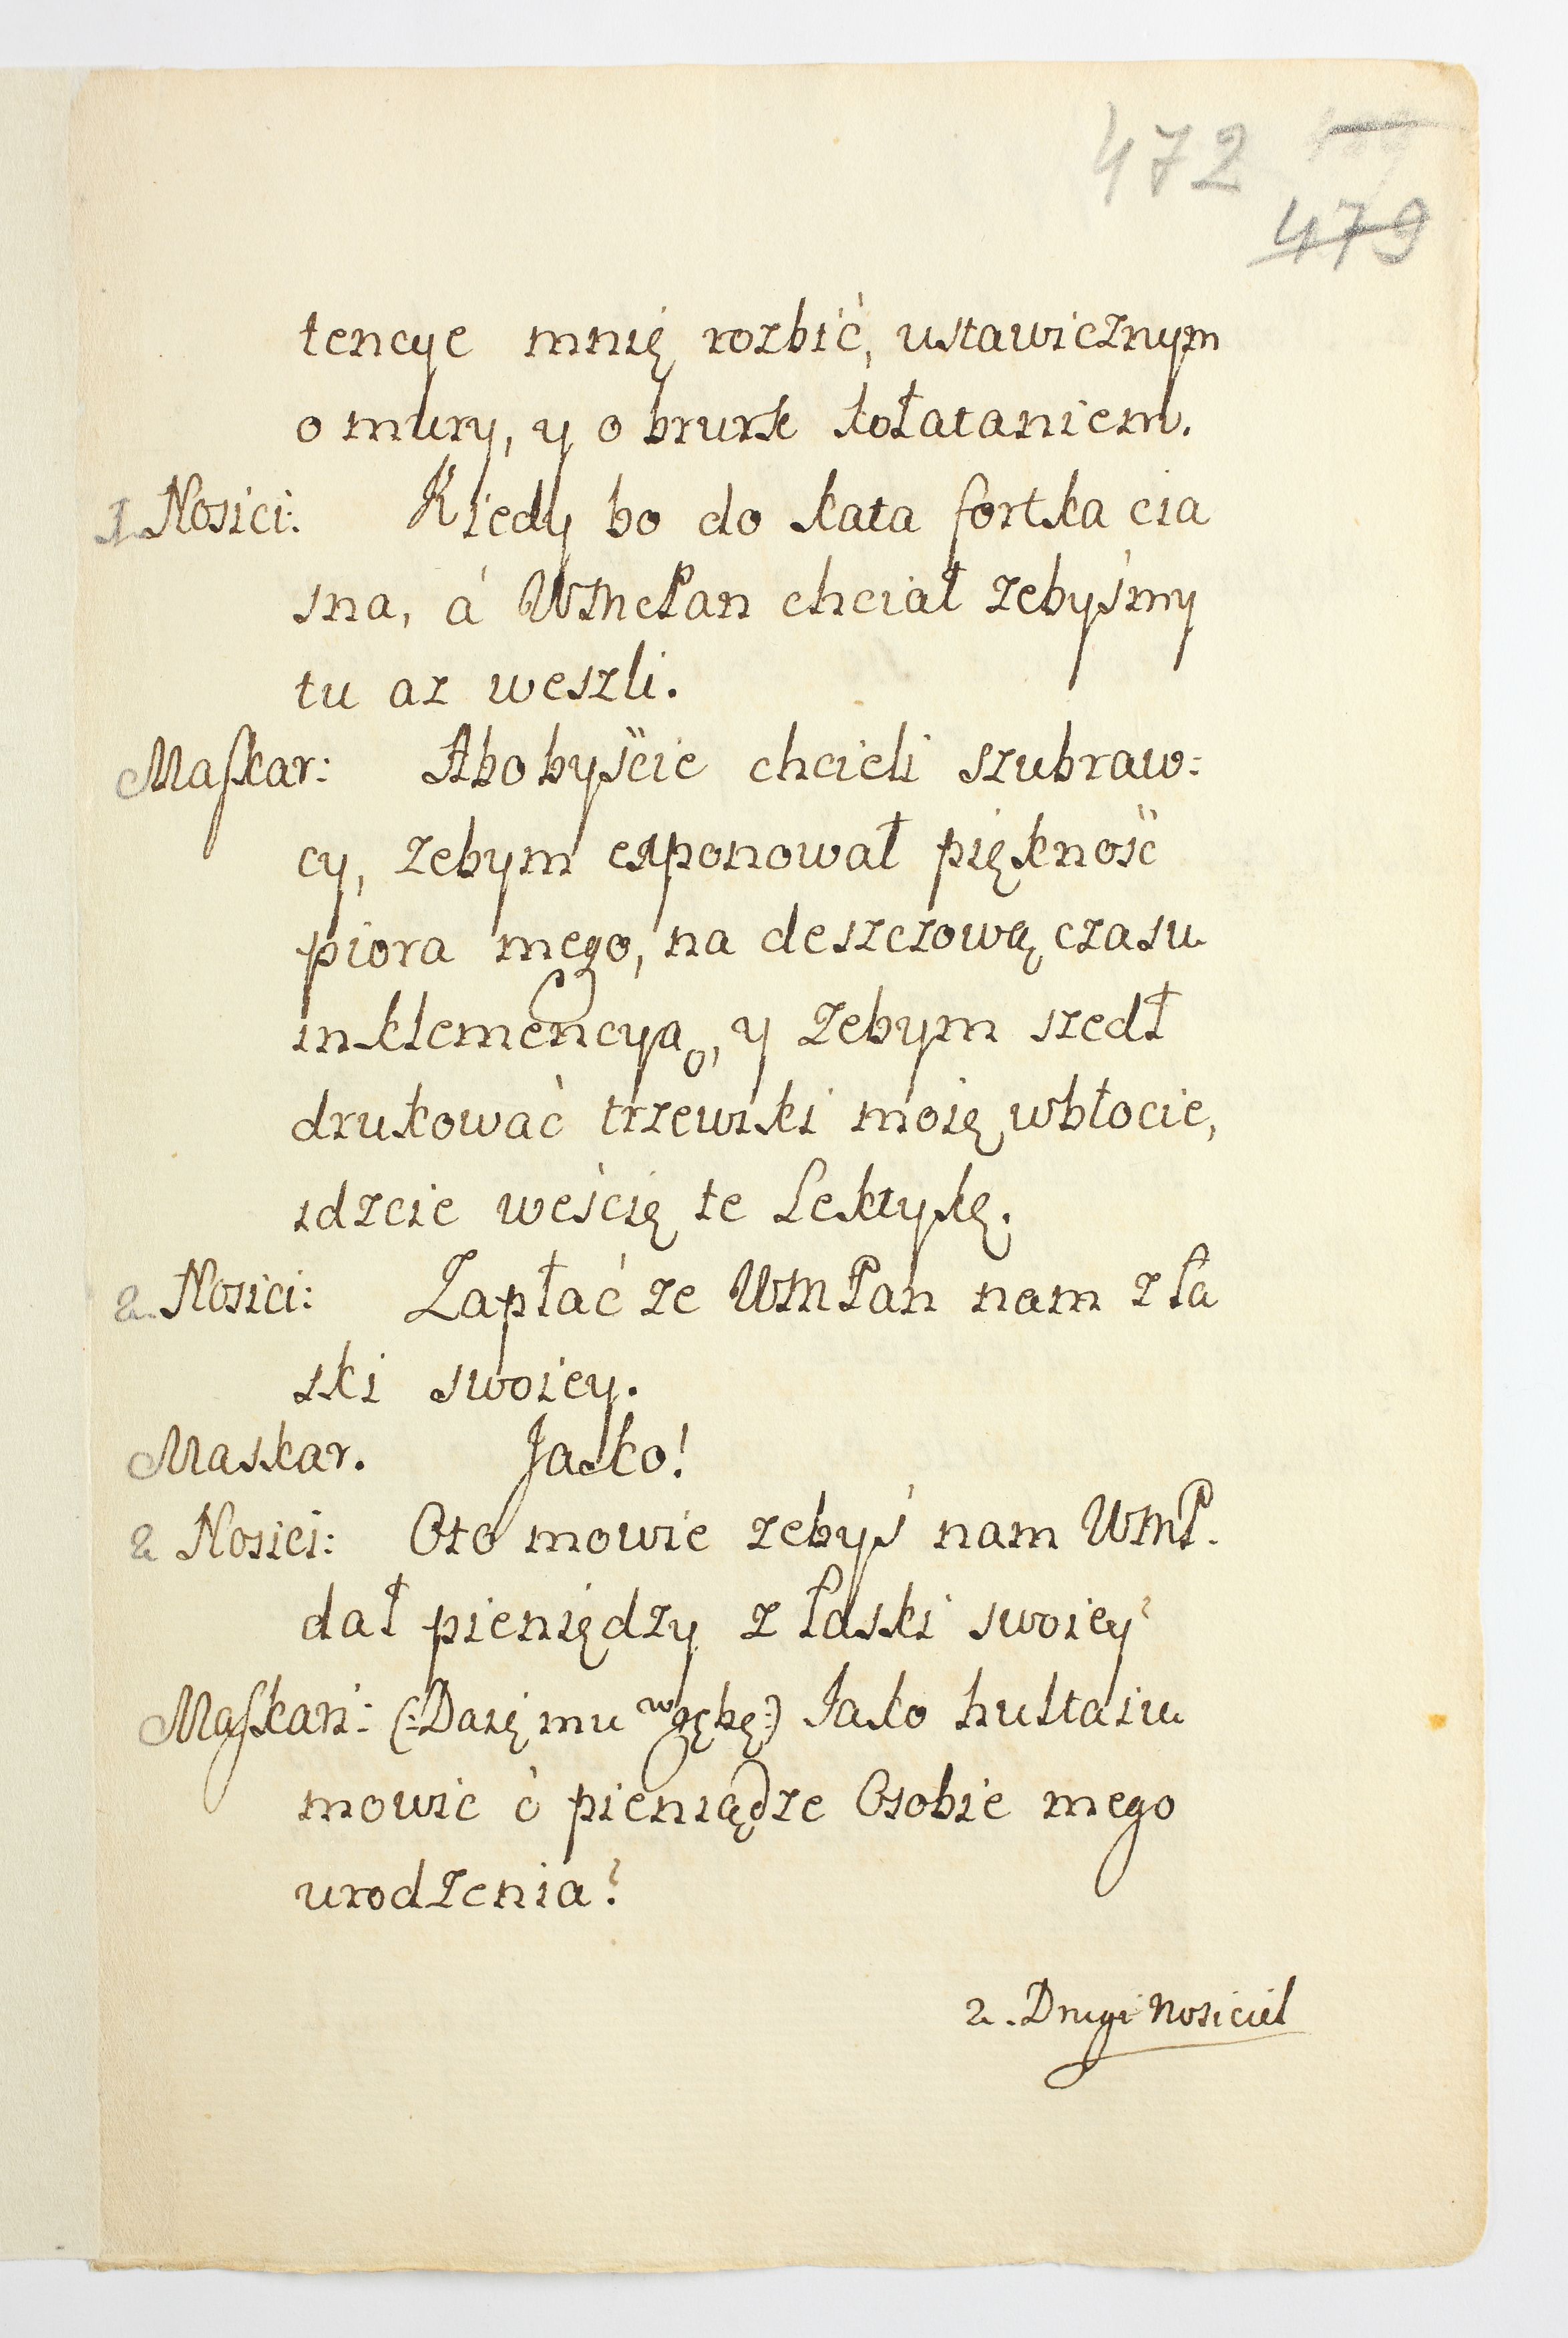 472
479
tencye mnię rozbić, ustawicznym
o mury, y o brurk kołataniem.
1. Nosici: Kiedy bo do kata fortka cia
sna, á WMcPan chciał żebyśmy
tu az weszli.
Maſkar: Abobyście chcieli szubraw:
cy, żebym exponował piękność
piora mego, na deszczową czasu
inklemencyą, y żebym szedł
drukować trzewiki moię wbłocie,
idzcie weścię te Lektykę.
2. Nosici: Zapłać ze WMPan nam z ła
ski swoiey.
Maskar. Jasko!
2 Nosici: Oto mowie zebyś nam WMP.
dał pieniędzy z łaski swoiey?
Maſkar: (: Daię mu w gębę :) Jako hultaiu
mowic ó pieniądze Osobie mego
urodzenia?
2. Drugi Nosiciel